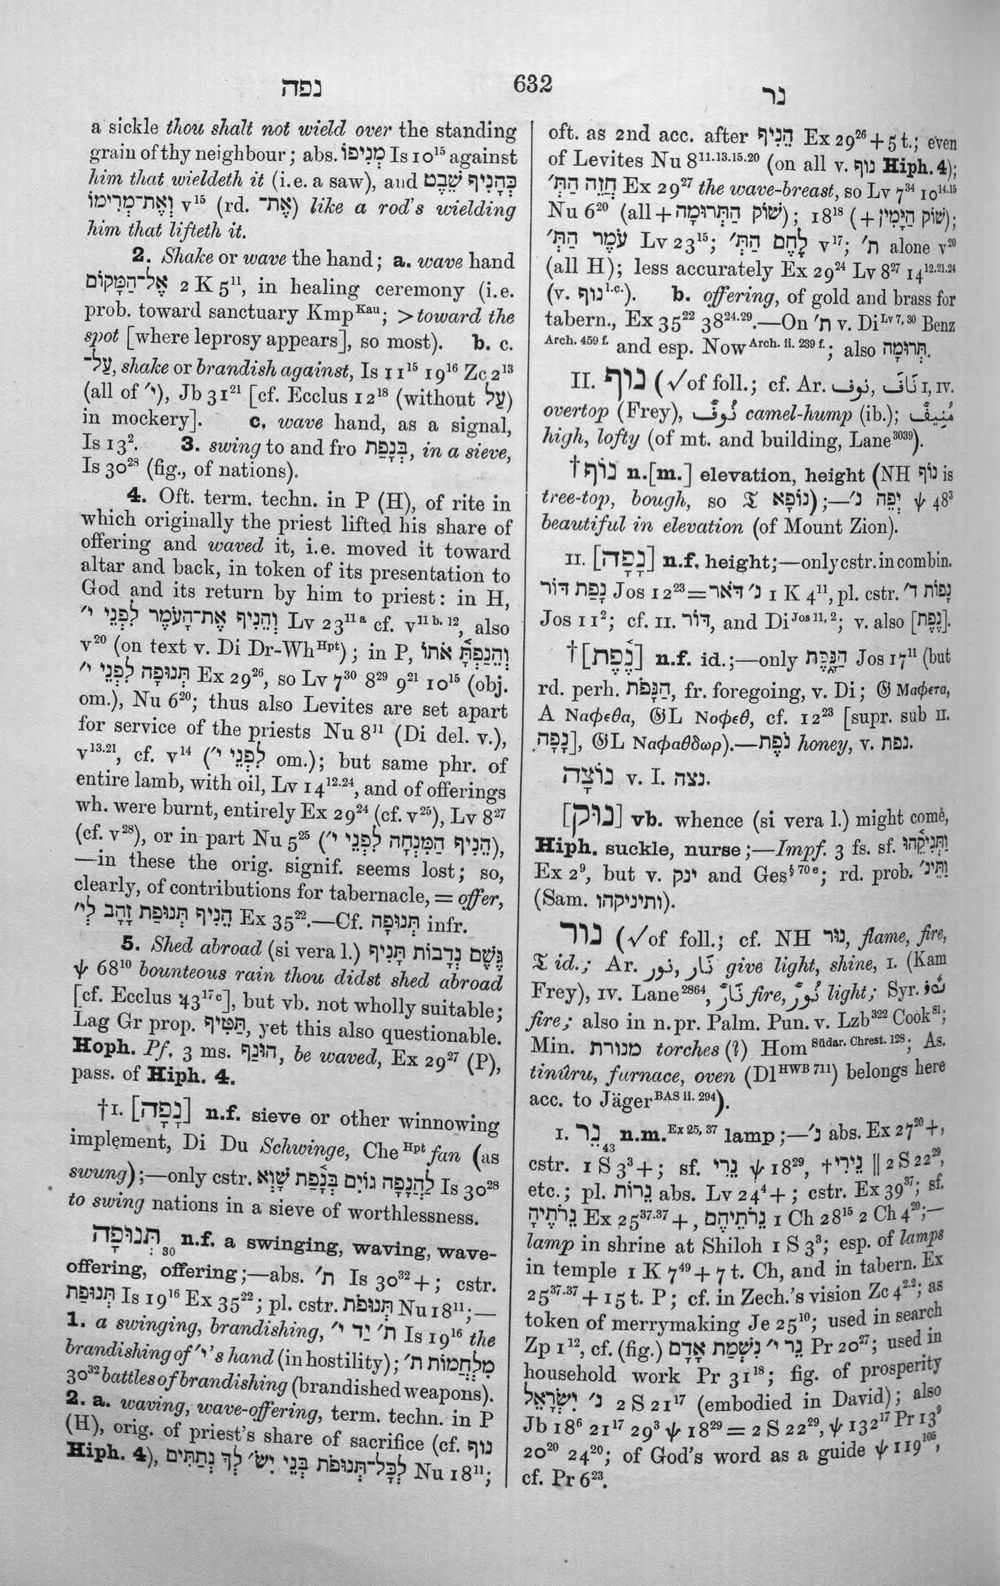 נפה
632
נר
a sickle thou shalt not wield over the standing
grain of thy neighbour; abs. מְנִיפוֹ Is 10¹⁵ against
him that wieldeth it (i.e. a saw), and כְּהָנִיף שֵׁבֶט
וְאֶת־מְרִימוֹ v¹⁵ (rd. אֶת־) like a rod's wielding
him that lifteth it.
2. Shake or wave the hand; a. wave hand
אֶל־הַמָּקוֹם 2 K 5¹¹, in healing ceremony (i.e.
prob. toward sanctuary Kmp Kau; > toward the
spot [where leprosy appears], so most). b. c.
עַל־, shake or brandish against, Is 11¹⁵ 19¹⁶ Zc 2¹³
(all of י״), Jb 31²¹ [cf. Ecclus 12¹⁸ (without עַל)
in mockery]. c. wave hand, as a signal,
Is 13². 3. swing to and fro בְּנָפַת, in a sieve,
Is 30²⁸ (fig., of nations).
4. Oft. term. techn. in P (H), of rite in
which originally the priest lifted his share of
offering and waved it, i.e. moved it toward
altar and back, in token of its presentation to
God and its return by him to priest: in H,
וְהֵנִיף אֶת־הָעֹמֶר לִפְנֵי י״ Lv 23¹¹ᵃ cf. v¹¹ᵇ·¹², also
v²⁰ (on text v. Di Dr-Wh Hpt); in P, וְהֵנַפְתָּ אֹתוֹ
תְּנוּפָה לִפְנֵי י״ Ex 29²⁶, so Lv 7³⁰ 8²⁹ 9²¹ 10¹⁵ (obj.
om.), Nu 6²⁰; thus also Levites are set apart
for service of the priests Nu 8¹¹ (Di del. v.),
v¹³·²¹, cf. v¹⁴ (לִפְנֵי י״ om.); but same phr. of
entire lamb, with oil, Lv 14¹²·²⁴, and of offerings
wh. were burnt, entirely Ex 29²⁴ (cf. v²⁵), Lv 8²⁷
(cf. v²⁸), or in part Nu 5²⁵ (הֵנִיף הַמִּנְחָה לִפְנֵי י״),
—in these the orig. signif. seems lost; so,
clearly, of contributions for tabernacle, = offer,
הֵנִיף תְּנוּפַת זָהָב לַי״ Ex 35²².—Cf. תְּנוּפָה infr.
5. Shed abroad (si vera l.) גֶּשֶׁם נְדָבוֹת תָּנִיף
ψ 68¹⁰ bounteous rain thou didst shed abroad
[cf. Ecclus 43¹⁷ᶜ], but vb. not wholly suitable;
Lag Gr prop. תַּטִּיף, yet this also questionable.
Hoph. Pf. 3 ms. הוּנַף, be waved, Ex 29²⁷ (P),
pass. of Hiph. 4.
†I. [נָפָה] n.f. sieve or other winnowing
implement, Di Du Schwinge, Che Hpt fan (as
swung);—only cstr. לַהֲנָפָה גוֹיִם בְּנָפַת שָׁוְא Is 30²⁸
to swing nations in a sieve of worthlessness.
תְּנוּפָה 30 n.f. a swinging, waving, wave-
offering, offering;—abs. ת׳ Is 30³²+; cstr.
תְּנוּפַת Is 19¹⁶ Ex 35²²; pl. cstr. תְּנוּפֹת Nu 18¹¹;—
1. a swinging, brandishing, ת׳ יַד י״ Is 19¹⁶ the
brandishing of י״'s hand (in hostility); מִלְחֲמוֹת ת׳
30³² battles of brandishing (brandished weapons).
2. a. waving, wave-offering, term. techn. in P
(H), orig. of priest's share of sacrifice (cf. נוף
Hiph. 4), לְכָל־תְּנוּפֹת בְּנֵי יִשׂ׳ לְךָ נְתַתִּים Nu 18¹¹;
oft. as 2nd acc. after הֵנִיף Ex 29²⁶+5 t.; even
of Levites Nu 8¹¹·¹³·¹⁵·²⁰ (on all v. נוף Hiph. 4);
חֲזֵה הַתְּ׳ Ex 29²⁷ the wave-breast, so Lv 7³⁴ 10¹⁴·¹⁵
Nu 6²⁰ (all + שׁוֹק הַתְּרוּמָה); 18¹⁸ (+ שׁוֹק הַיָּמִין);
עֹמֶר הַתְּ׳ Lv 23¹⁵; לֶחֶם הַתְּ׳ v¹⁷; ת׳ alone v²⁰
(all H); less accurately Ex 29²⁴ Lv 8²⁷ 14¹²·²¹·²⁴
(v. נוף l.c.). b. offering, of gold and brass for
tabern., Ex 35²² 38²⁴·²⁹.—On ת׳ v. Di Lv 7, 30 Benz
Arch. 459 f. and esp. Now Arch. ii. 239 f.; also תְּרוּמָה.
II. נוף (√of foll.; cf. Ar. نوف, نَافَ I, IV.
overtop (Frey), نُوفٌ camel-hump (ib.); مُنِيفٌ
high, lofty (of mt. and building, Lane³⁰³⁹).
†נוֹף n.[m.] elevation, height (NH נוֹף is
tree-top, bough, so 𝔗 נוֹפָא);—יְפֵה נ׳ ψ 48³
beautiful in elevation (of Mount Zion).
II. [נָפָה] n.f. height;—only cstr. in combin.
נָפַת דּוֹר Jos 12²³=נ׳ דֹּאר 1 K 4¹¹, pl. cstr. נָפוֹת ד׳
Jos 11²; cf. II. דּוֹר, and Di Jos 11, 2; v. also [נֶפֶת].
†[נֶפֶת] n.f. id.;—only הַנָּפֶת Jos 17¹¹ (but
rd. perh. הַנָּפֹת, fr. foregoing, v. Di; 𝔊 Μαφετα,
A Ναφεθα, 𝔊L Νοφεθ, cf. 12²³ [supr. sub II.
נָפָה], 𝔊L Ναφαθδωρ).—נֹפֶת honey, v. נפת.
נוֹצָה v. I. נצה.
[נוק] vb. whence (si vera l.) might come,
Hiph. suckle, nurse;—Impf. 3 fs. sf. וַתְּנִיקֵהוּ
Ex 2⁹, but v. ינק and Ges§ 70 e; rd. prob. וַתֵּינִ׳
(Sam. ותיניקהו).
נור (√of foll.; cf. NH נוּר, flame, fire,
𝔗 id.; Ar. نور, نَارَ give light, shine, I. (Kam
Frey), IV. Lane²⁸⁶⁴, نَارٌ fire, نُورٌ light; Syr. ܢܘܪ
fire; also in n.pr. Palm. Pun. v. Lzb³²² Cook⁸¹;
Min. מנורת torches (?) Hom Südar. Chrest. 128; As.
tinûru, furnace, oven (Dl HWB 711) belongs here
acc. to Jäger BAS ii. 294).
I. נֵר 43 n.m. Ex 25, 37 lamp;—נ׳ abs. Ex 27²⁰+,
cstr. 1 S 3³+; sf. נֵרִי ψ 18²⁹, †נֵירִי ‖ 2 S 22²⁹,
etc.; pl. נֵרוֹת abs. Lv 24⁴+; cstr. Ex 39³⁷; sf.
נֵרֹתֶיהָ Ex 25³⁷·³⁷+, נֵרֹתֵיהֶם 1 Ch 28¹⁵ 2 Ch 4²⁰;—
lamp in shrine at Shiloh 1 S 3³; esp. of lamps
in temple 1 K 7⁴⁹+7 t. Ch, and in tabern. Ex
25³⁷·³⁷+15 t. P; cf. in Zech.'s vision Zc 4²·²; as
token of merrymaking Je 25¹⁰; used in search
Zp 1¹², cf. (fig.) נֵר י״ נִשְׁמַת אָדָם Pr 20²⁷; used in
household work Pr 31¹⁸; fig. of prosperity
נ׳ יִשְׂרָאֵל 2 S 21¹⁷ (embodied in David); also
Jb 18⁶ 21¹⁷ 29³ ψ 18²⁹=2 S 22²⁹, ψ 132¹⁷ Pr 13⁹
20²⁰ 24²⁰; of God's word as a guide ψ 119¹⁰⁵,
cf. Pr 6²³.